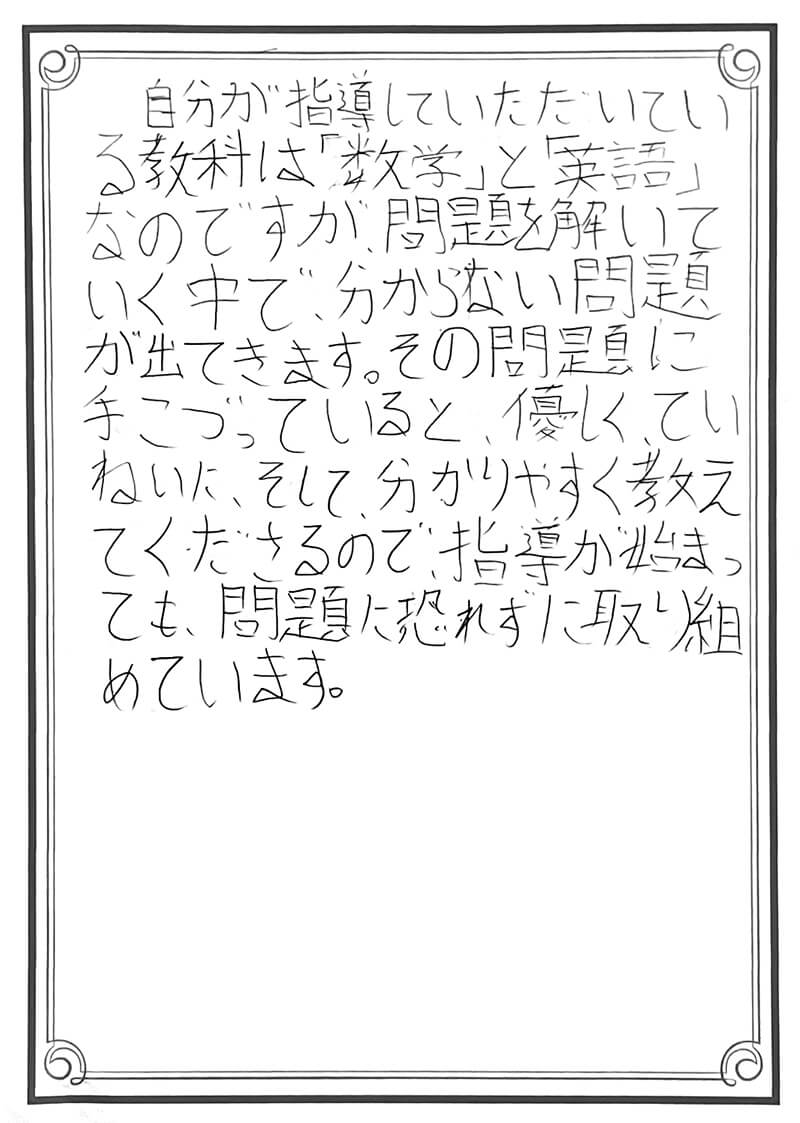 自分が指導していただいてい
る教科は「数学」と「英語」
なのですが、問題を解いて
いく中で、分からない問題
が出てきます。その問題に
手こづっていると、優しく、てい
ねいに、そして、分かりやすく教え
てくださるので、指導が始まっ
ても、問題に恐れずに取り組
めています。